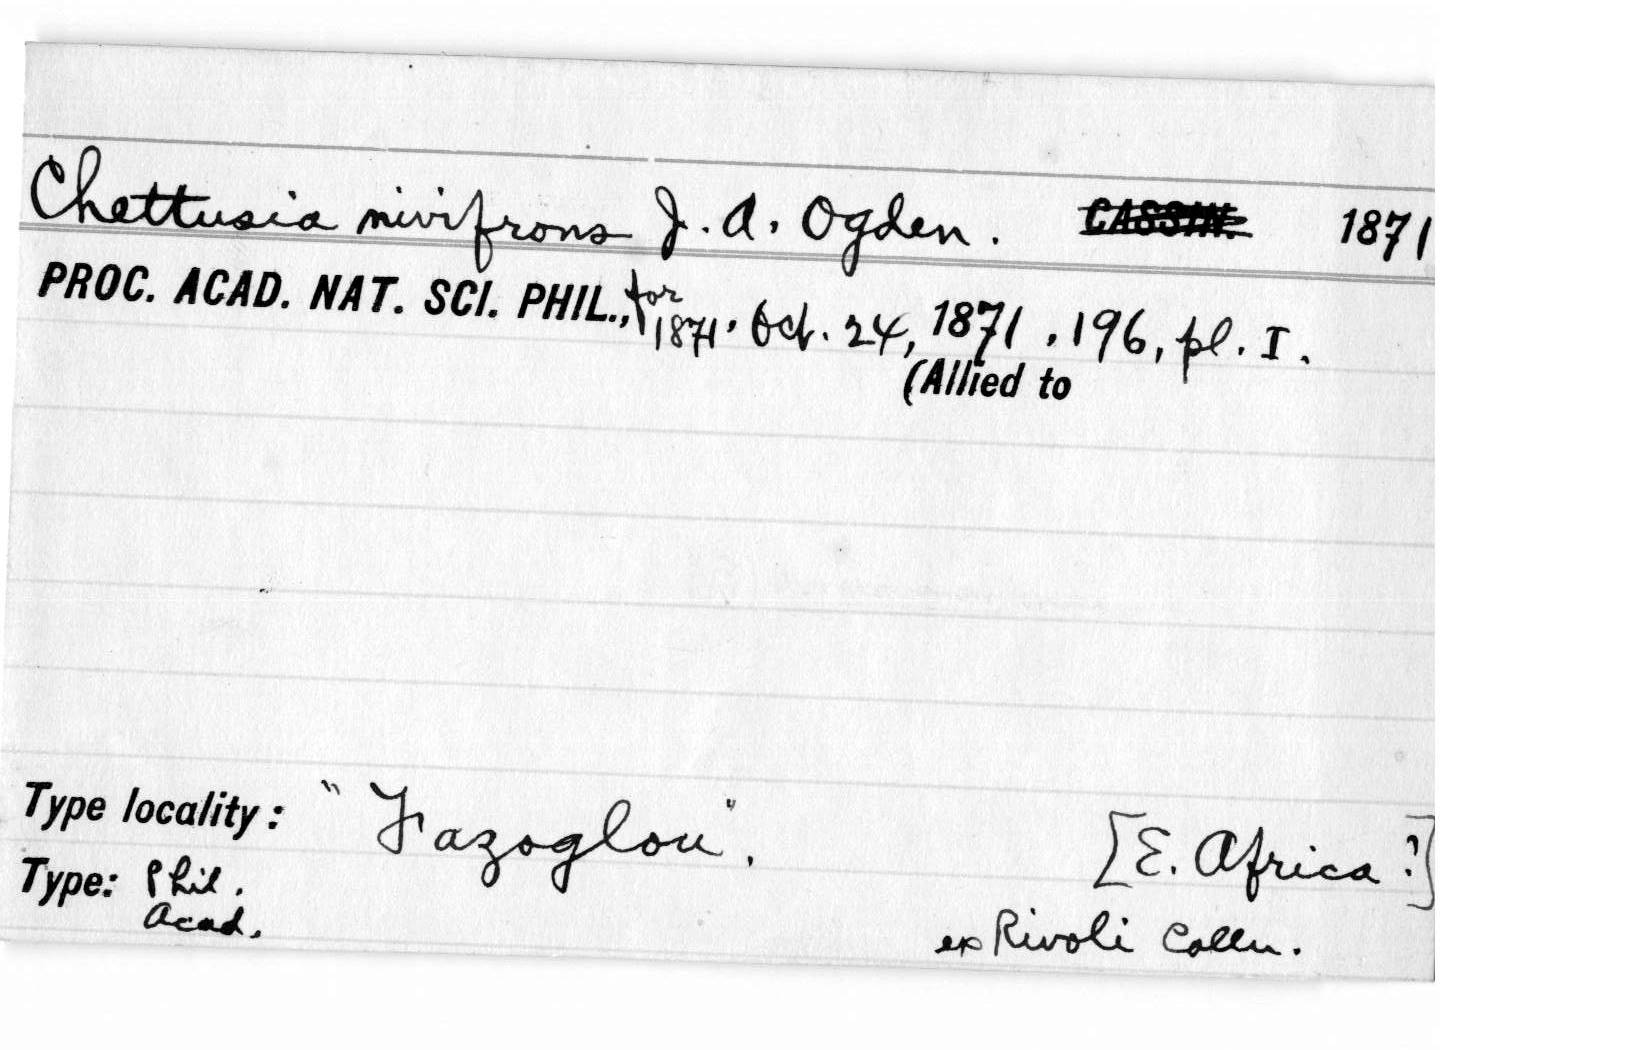 Chettusia nivifrons J. A. Ogden. CASSIN. 1871
PROC. ACAD. NAT. SCI. PHIL., for 1871, Oct. 24, 1871, 196, pl. I.
(Allied to
Type locality: "Fazoglou". [E. Africa?]
Type: Phil. Acad. ex Rivoli Colln.